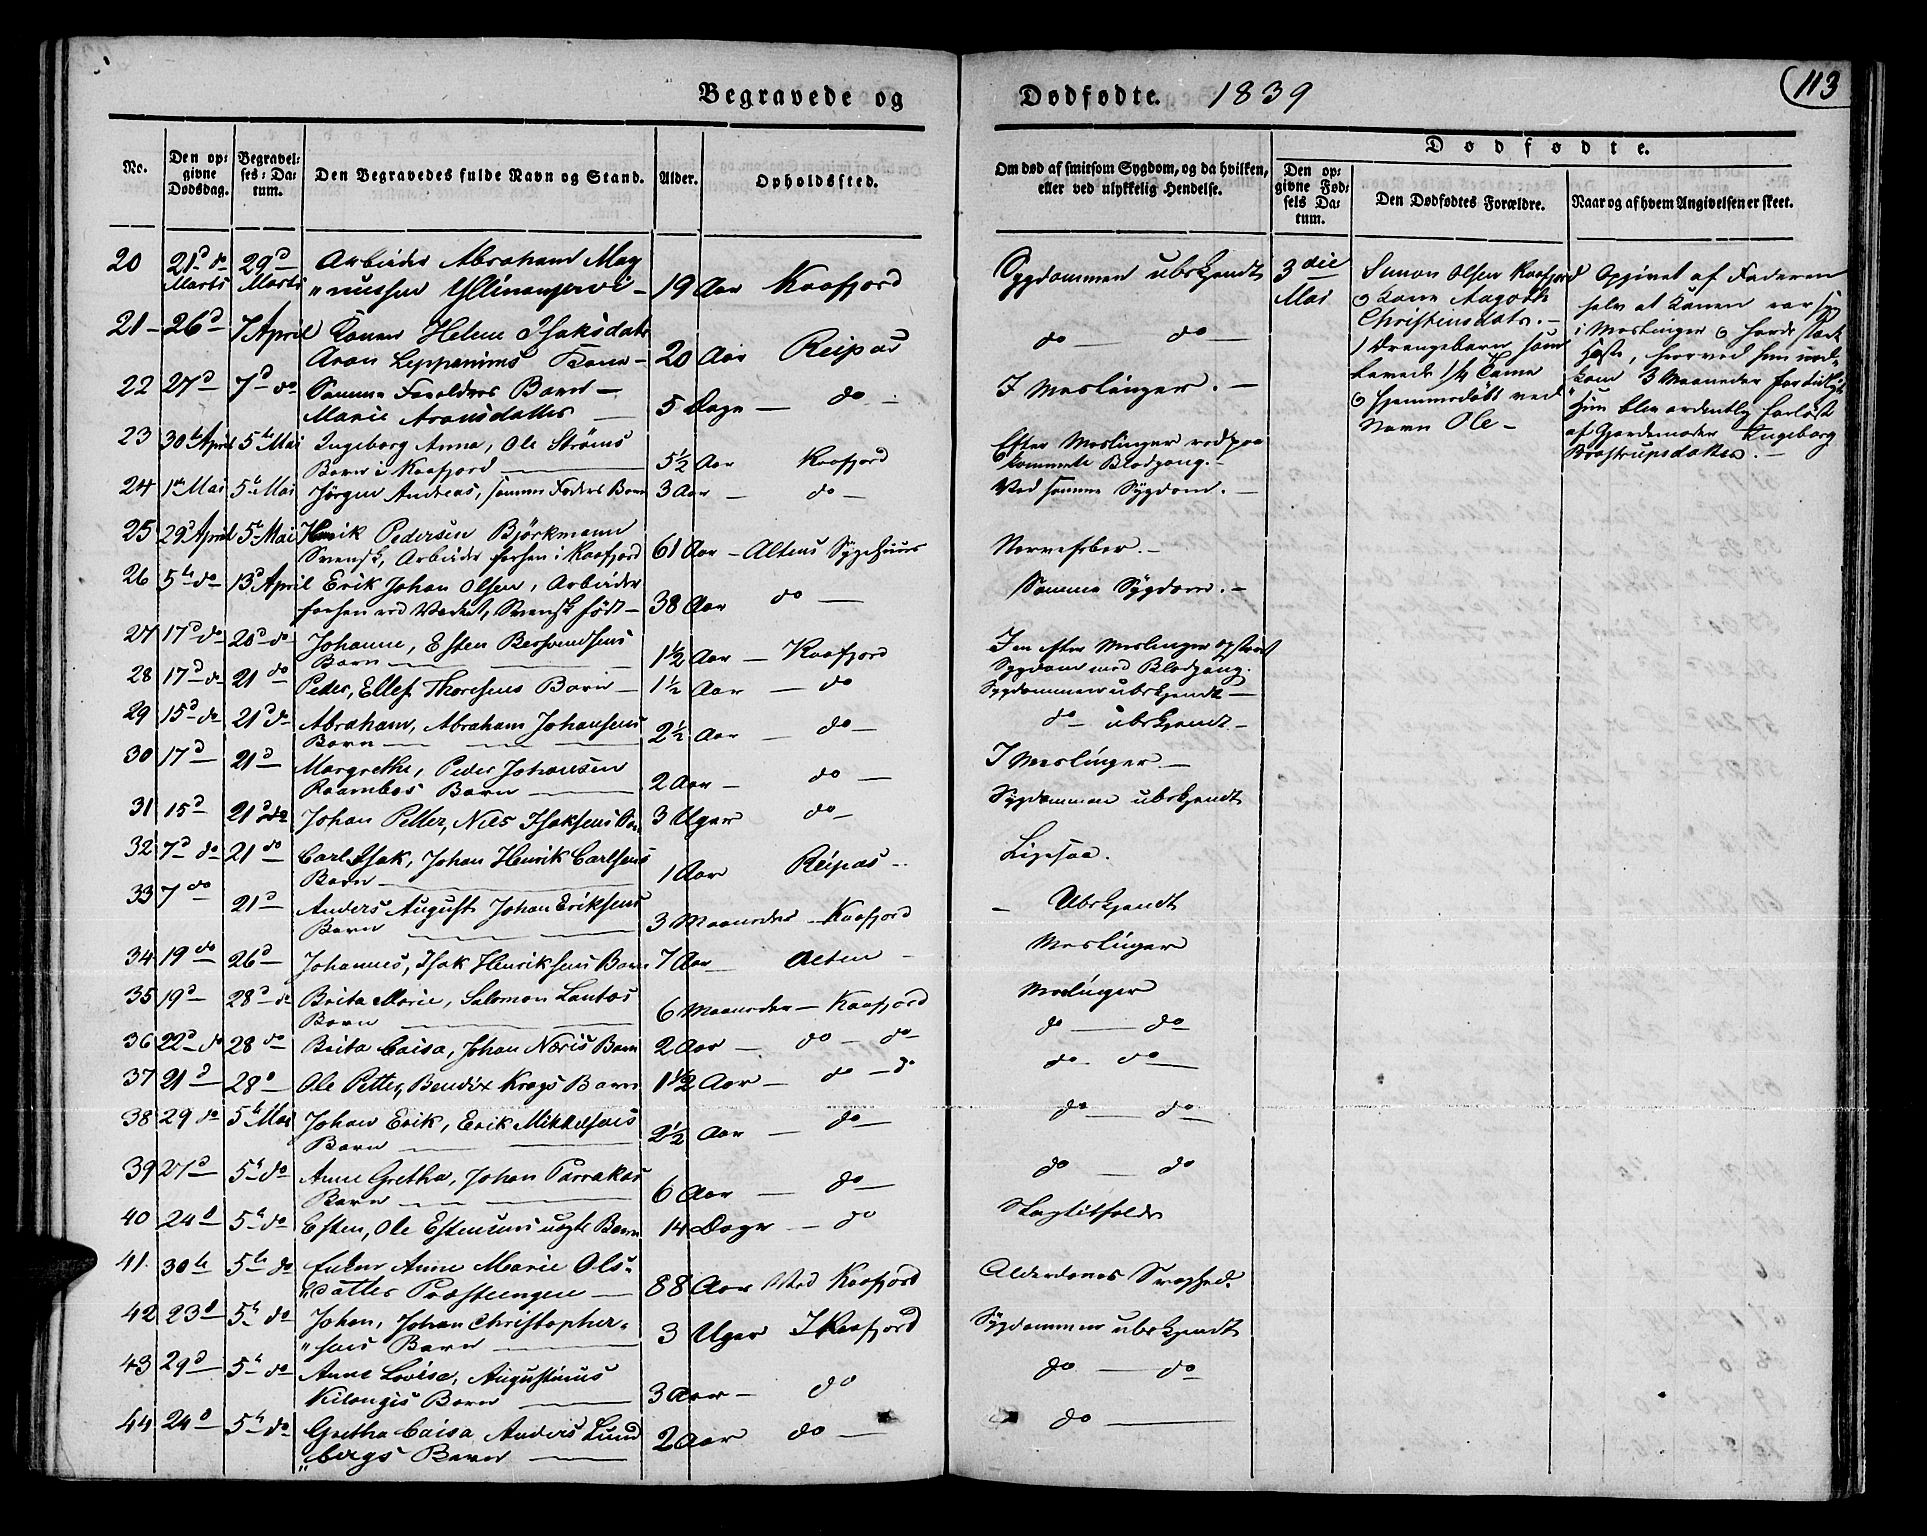 Begravede og Dødfødte. 1839 113
No. Den opgivne Dødsdag. Begravelses-Datum. Den Begravedes fulde Navn og Stand. Alder. Opholdssted. Om død af smitsom Sygdom, og da hvilken, eller ved ulykkelig Hendelse. Dødfødte. Den opgivne Fødsels Datum. Den Dødfødtes Forældre. Naar og af hvem Angivelsen er skeet.
20 21d do Marts 29d Marts Arbeider Abraham Mag
„nussen 19 Aar Kaafjord Sygdommen ubekjendt
21 26d 7 April Konen Helene Isaksdatr
Aron Leppenims Kone 20 Aar Reipas do do
22 27d 7d do Samme Forældres Barn
Marie Aronsdatter 5 Dage do I Meslinger.
23 30te April 5te Mai Ingeborg Anna, Ole Strøms
Barn i Kaafjord 5½ Aar Kaafjord Efter Meslinger vedpaa
kommende Blodgang.
24 1te Mai 5te Mai Jørgen Andreas, samme Faders Barn 3 Aar do Ved samme Sygdom.
25 29d April 5te Mai Henrik Pedersen Björkmann
Svensk, Arbeider forhen i Kaafjord 61 Aar Altens Sygehuus Nervefeber.
26 5te do 13d April Erik Johan Olsen, Arbeider
forhen ved Værket, Svensk født 38 Aar do Samme Sygdom.
27 17d do 20d do Johanne, Esten Bersvendsens
Barn 1½ Aar Kaafjord I en efter Meslinger opstaaet
Sygdom med Blodgang.
28 17d do 21 do Peder, Ellef Thoresens Barn 1½ Aar do Sygdommen ubekjendt
29 15d do 21d do Abraham, Abraham Johansens
Barn 2½ Aar do do ubekjendt
30 17d 21d Margrethe, Peder Johansen
Barn 2 Aar do I Meslinger.
31 15d 21d do Johan Petter, Nils Isaksens Barn 3 Uger do Sygdommen ubekjendt
32 7d do 21 do Carl Isak, Johan Henrik Carlsens
Barn 1 Aar Reipas Ligesaa.
33 7 do 21d Anders August, Johan Eriksens
Barn 3 Maaneder Kaafjord Ubekjendt
34 19 do 26d Johannes, Isak Henriksens Barn 7 Aar Alten Meslinger
35 19d 28d do Brita Marie, Salomon Lantos
Barn 6 Maaneder Kaafjord Meslinger
36 22d do 28 do Brita Caisa, Johan Næris Barn 2 Aar do do do do
37 21d 28d Ole Petter, Bendix Krogs Barn 1½ Aar do do do do
38 29 do 5te Mai Johan Erik, Erik Mikkelsens
Barn 2½ Aar do do do
39 27d 5te do Anne Gretha, Johan Parrakas
Barn 6 Aar do do do
40 24d 5te do Esten, Ole Estensens uægte Barn 14 Dage do Slagtilfælde
41. 30te 5te do Enken Anne Marie Ols-
„datter Præstengen 88 Aar Ved Kaafjord Alderdoms Svaghed.
42 23d 5te do Johan, Johan Christopher-
„sens Barn 3 Uger I Kaafjord Sygdommen ubekjendt
43 29d 5te do Anne Lovisa, Augustinus
Kilangis Barn 3 Aar do do do
44 24d 5te do Gretha Caisa Anders Lund
„bergs Barn 2 Aar do do
3die
Mai
Simon Olsen Kaafjord
o Kone Aagoth
Christensdatr.
1 Drengebarn som
levede ½ Time
o hjemmedøbt ved
Navn Ole
Opgivet af Faderen
selv at Konen var syg
i Meslinger o havde stærk
Hoste, hvorved hun ned-
kom 3 Maaneder for tidligt
Hun blev ordentlig forløst
af Gjordemoder Ingeborg